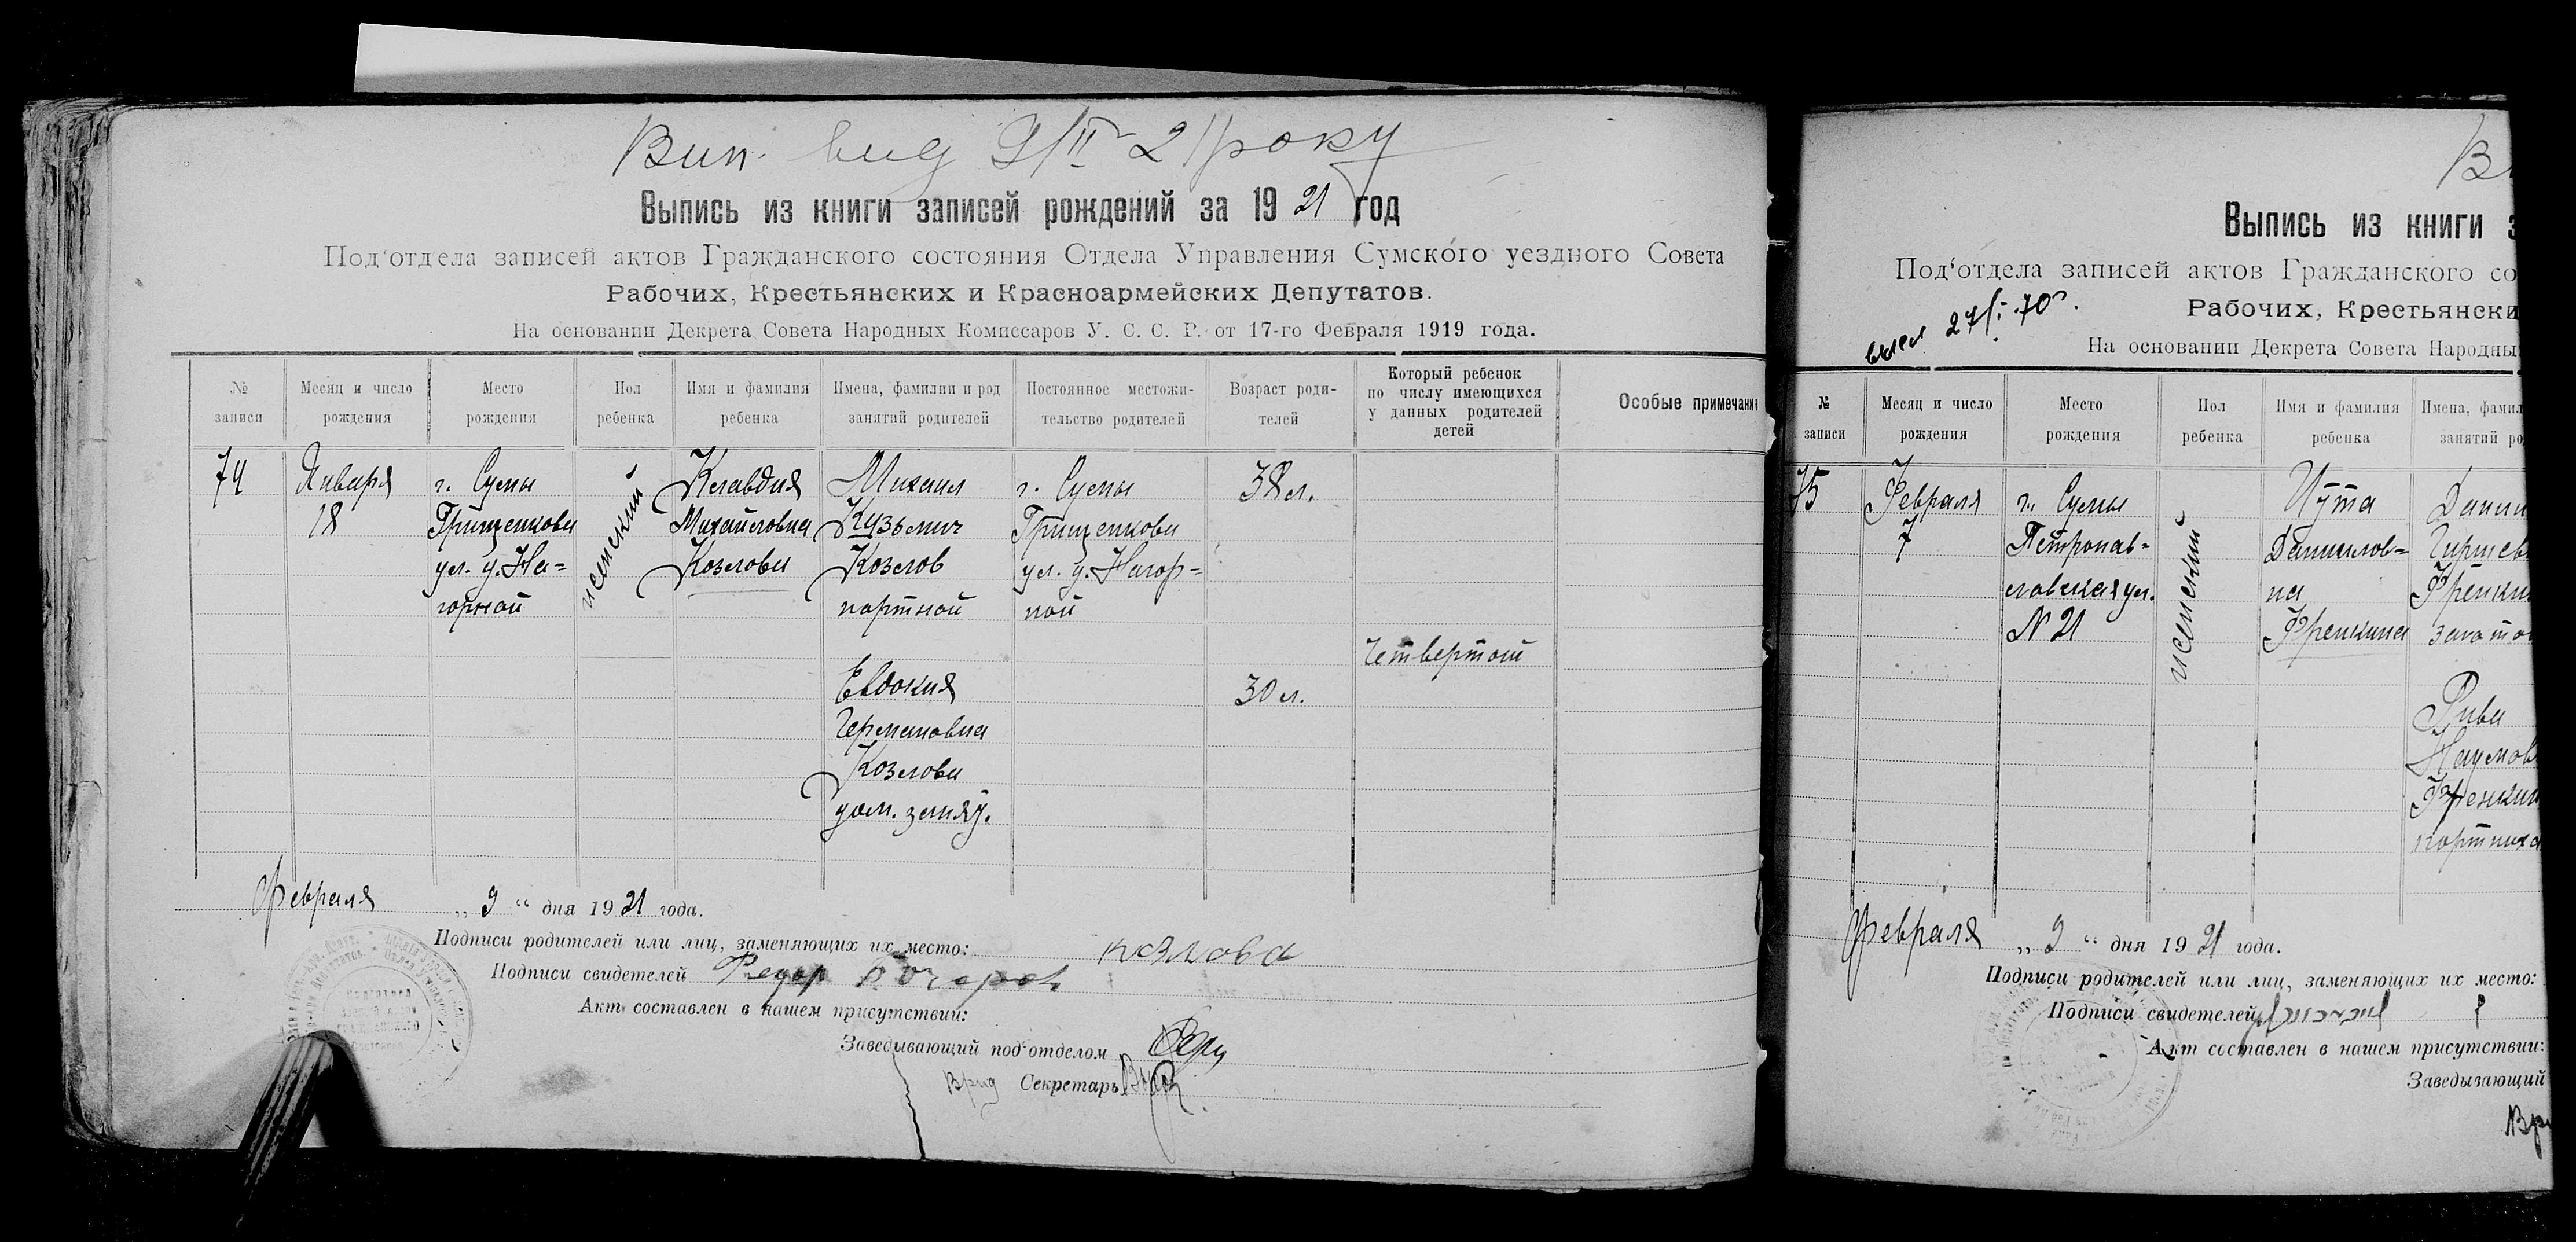 Вип. вид 9/II 21 року
Выпись из книги записей рождений за 1921 год
Под'отдела записей актов Гражданского состояния Отдела Управления Сумского уездного Совета
Рабочих, Крестьянских и Красноармейских Депутатов.
На основании Декрета Совета Народных Комиссаров У. С. С. Р. от 17-го Февраля 1919 года.
№ записи
Месяц и число рождения
Место рождения
Пол ребенка
Имя и фамилия ребенка
Имена, фамилии и род занятий родителей
Постоянное местожительство родителей
Возраст родителей
Который ребенок по числу имеющихся у данных родителей детей
Особые примечания
74
Января
18
г. Сумы
Грищенкова
ул. у. На=
горной
женский
Клавдия
Михайловна
Козлова
Михаил
Кузьмич
Козлов
портной
Евдокия
Германовна
Козлова
дом. зан.
г. Сумы
Грищенкова
ул. у. Нагор=
ной
38 л.
30 л.
Четвертой
Февраля „ 9 “ дня 1921 года.
Подписи родителей или лиц, заменяющих их место: козлова
Подписи свидетелей Федор
Акт составлен в нашем присутствии:
Заведывающий под'отделом
Врид Секретарь
Выпись из книги
Под'отдела записей актов Гражданского со
Рабочих, Крестьянски
На основании Декрета Совета Народны
27/I 70
№ записи
Месяц и число рождения
Место рождения
Пол ребенка
Имя и фамилия ребенка
Имена, фамил
занятий ро
75
Февраля
7
г. Сумы
Петропав=
ловская ул.
№ 21
женский
Данилов=
на
Френкина
Рива
Наумов
Френкин
портниха
Февраля „ 9 “ дня 1921 года.
Подписи родителей или лиц, заменяющих их место:
Подписи свидетелей
Акт составлен в нашем присутствии:
Заведывающий